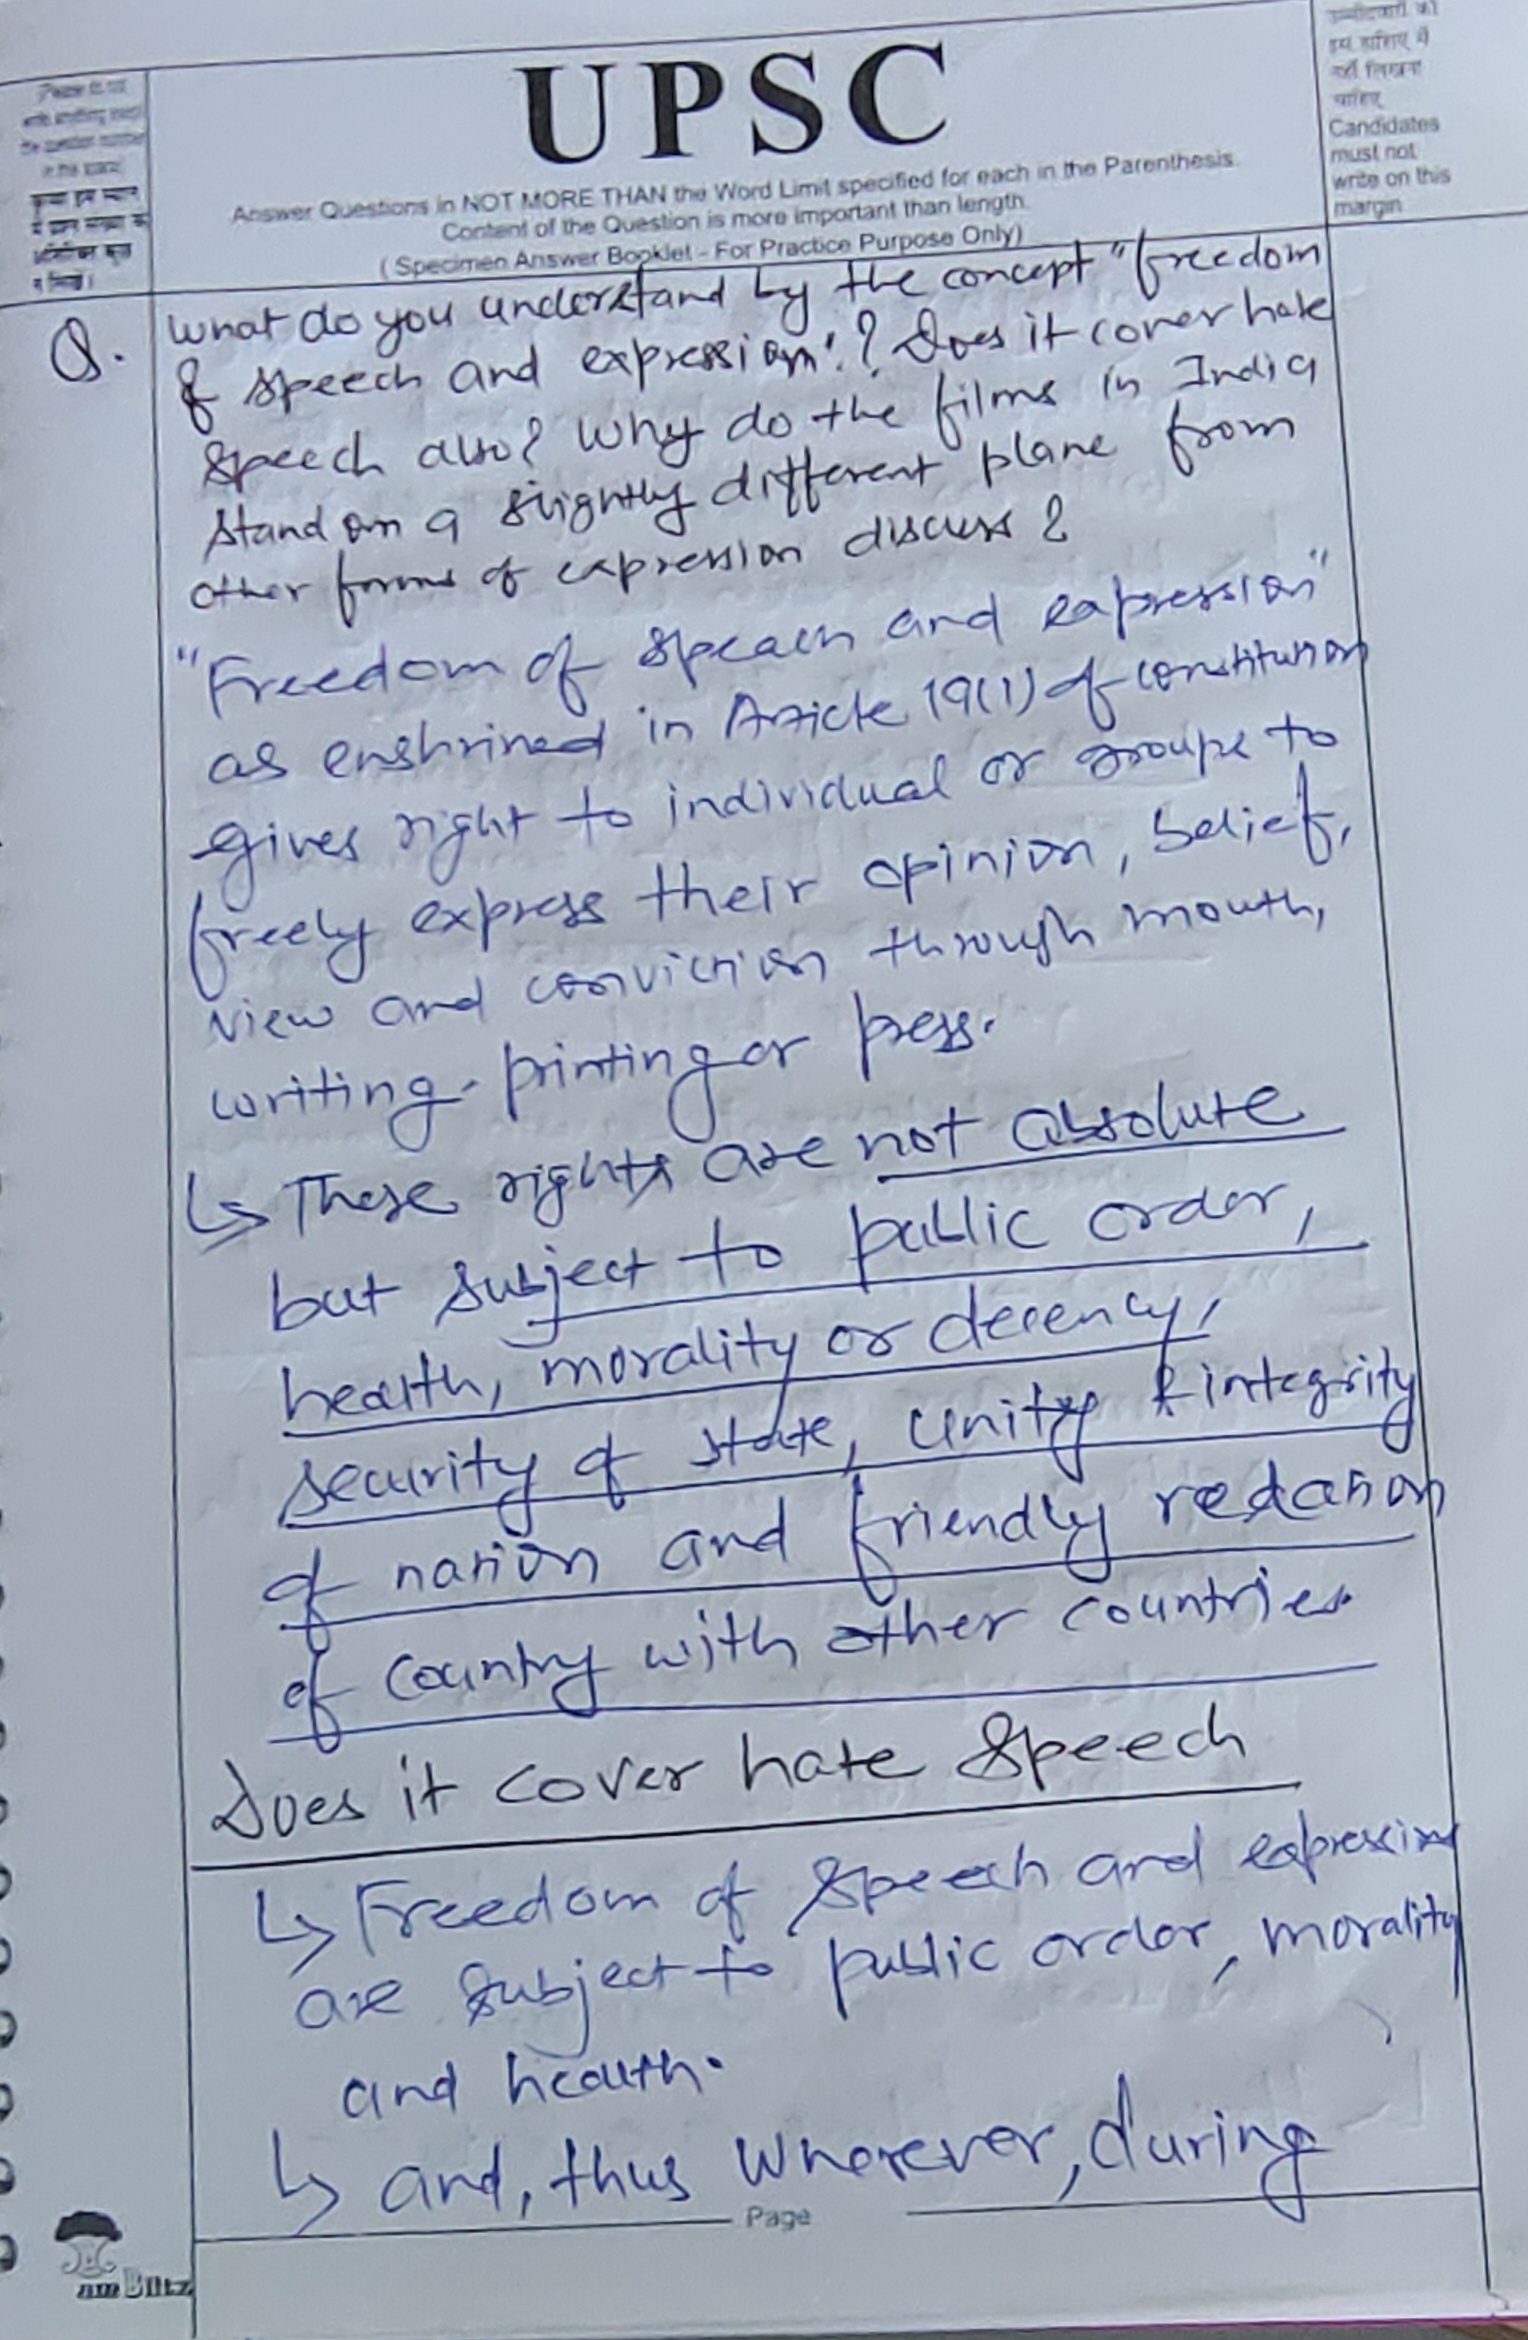 UPSC
Answer Questions in NOT MORE THAN the Word Limit specified for each in the Parenthesis.
Content of the Question is more important than length.
( Specimen Answer Booklet - For Practice Purpose Only)
इस हाशिए में
नहीं लिखना
चाहिए
Candidates
must not
write on this
margin
Q. What do you understand by the concept "freedom
of speech and expression"? Does it cover hate
speech also? Why do the films in India
stand on a slightly different plane from
other forms of expression discuss ?
"Freedom of speach and expression"
as enshrined in Article 19(1) of constitution
gives right to individual or groups to
freely express their opinion, belief,
view and conviction through mouth,
writing, printing or press.
↳ These rights are not absolute
but subject to public order,
health, morality or decency,
security of state, unity & integrity
of nation and friendly relation
of country with other countries.
Does it cover hate speech
↳ Freedom of speech and expression
are subject to public order, morality
and health.
↳ and, thus wherever, during
Page